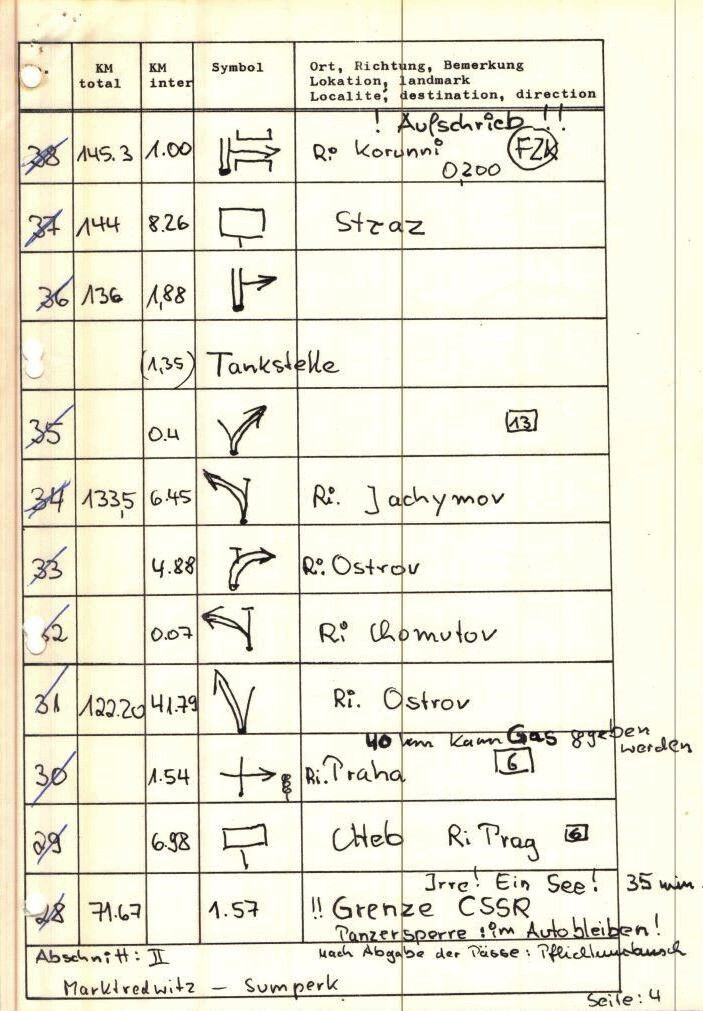 KM KM Symbol Ort, Richtung, Bemerkung
total inter Lokation, landmark
Localite, destination, direction
! Aufschrieb !!
38 145.3 1.00 Ri Korunni FZK
0,200
37 144 8.26 Straz
36 136 1,88
(1,35) Tankstelle
35 0.4 13
34 133,5 6.45 Ri. Jachymov
33 4.88 Ri. Ostrov
32 0.07 Ri Chomutov
31 122.20 41.79 Ri. Ostrov
40 km kann Gas gegeben
werden
30 1.54 Ri. Praha 6
29 6.98 CHeb Ri Prag 6
Irre! Ein See! 35 min.
28 71.67 1.57 !! Grenze CSSR
Panzersperre : im Auto bleiben!
Abschnitt: II nach Abgabe der Pässe: Pflichtumtausch
Marktredwitz - Sumperk
Seite: 4